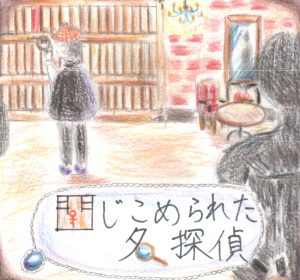 閉じこめられた
名探偵